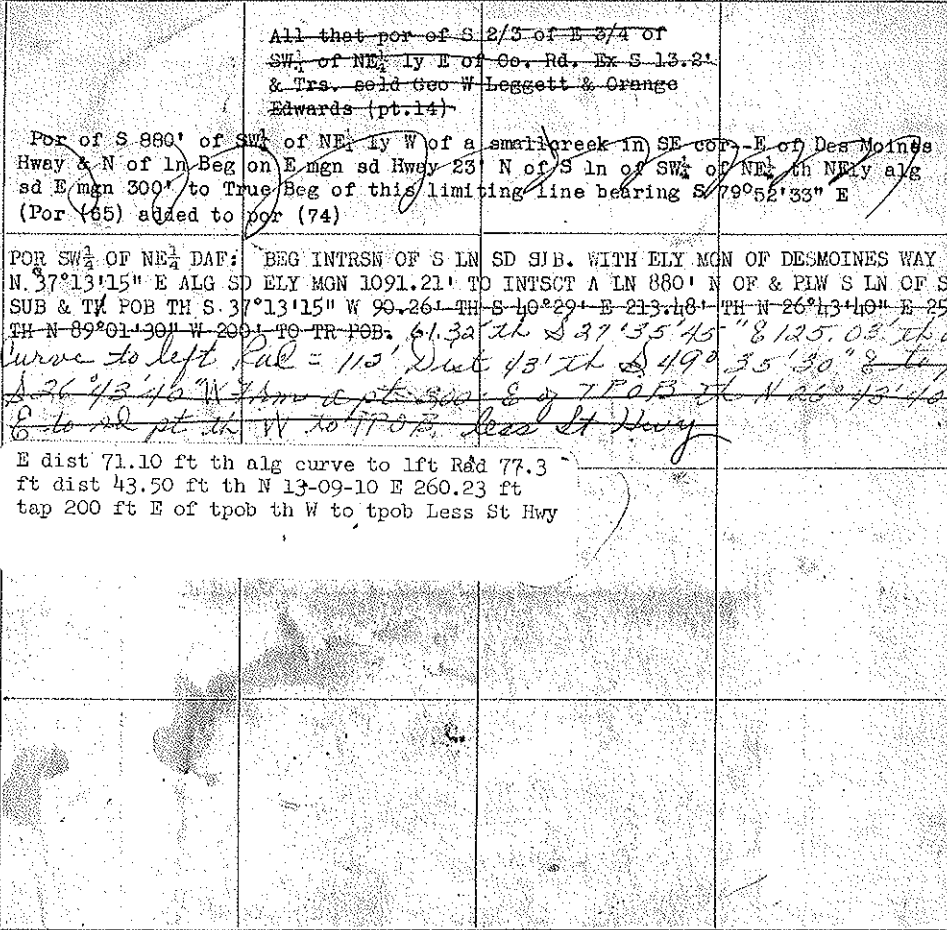 All that por of S 2/3 of E 3/4 of
SW¼ of NE¼ ly E of Co. Rd. Ex S 13.2'
& Trs. sold Geo W Leggett & Orange
Edwards (pt.14)
Por of S 880' of SW¼ of NE¼ ly W of a smallcreek in SE cor.-E of Des Moines
Hway & N of ln Beg on E mgn sd Hway 23' N of S ln of SW¼ of NE¼ th NEly alg
sd E mgn 300' to True Beg of this limiting line bearing S 79°52'33" E
(Por (65) added to por (74)
POR SW¼ OF NE¼ DAF: BEG INTRSN OF S LN SD SUB. WITH ELY MGN OF DESMOINES WAY
N.37°13'15" E ALG SD ELY MGN 1091.21' TO INTSCT A LN 880' N OF & PLW S LN OF S
SUB & POB TH S.37°13'15" W 90.26' TH S 40°29' E 213.48' TH N 26°43'40" E 25
TH N 89°01'30" W 200' TO TR POB. 61.32' th S 27°35'45" E 125.03' th
Curve to left Rad = 112' Dist 43' th S 49° 35'30" E to
S 26°43'40" W frm a pt 200' E of TPOB th N 26°43'40"
E to sd pt th W to TPOB. less St Hwy
E dist 71.10 ft th alg curve to lft Rad 77.3
ft dist 43.50 ft th N 13-09-10 E 260.23 ft
tap 200 ft E of tpob th W to tpob Less St Hwy